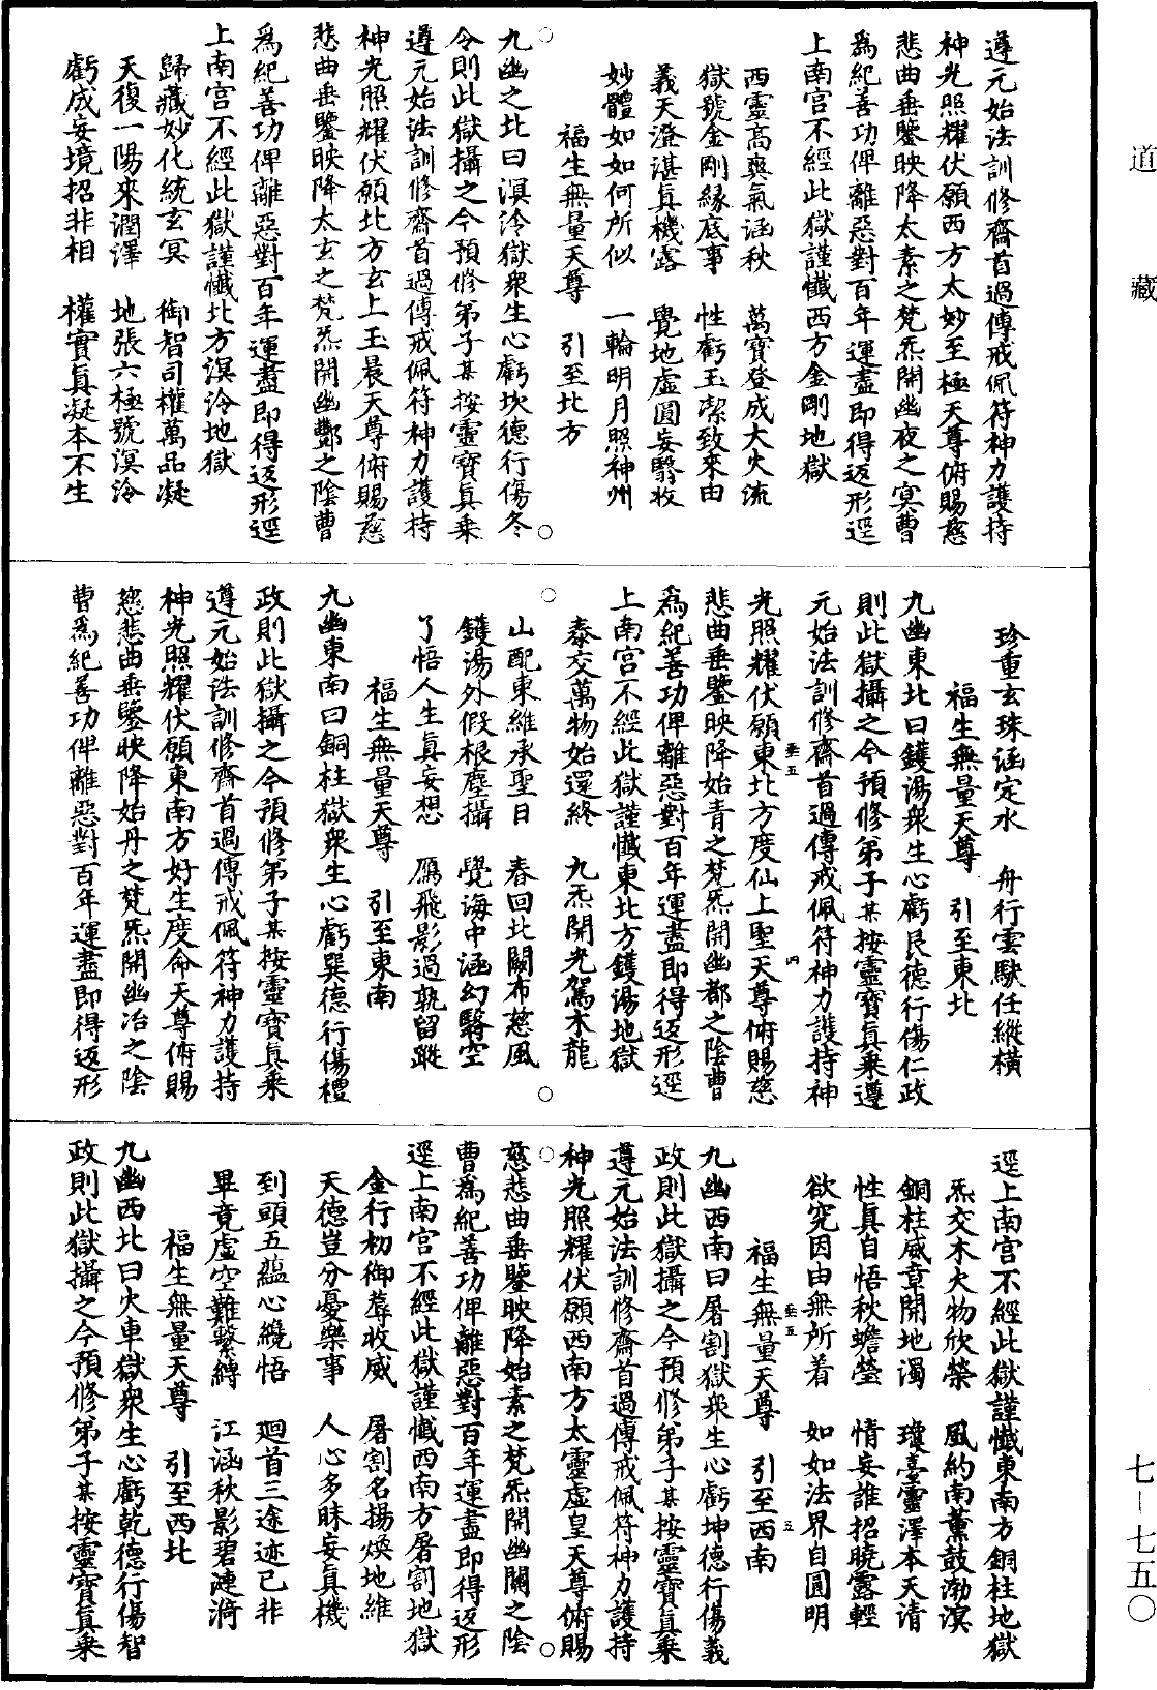 道藏
遵元始法訓修齋首過傳戒佩符神力護持
神光照耀伏願西方太妙至極天尊俯賜慈
悲曲垂鑒映降太素之梵炁開幽夜之冥曹
爲紀善功俾離惡對百年運盡即得返形逕
上南宮不經此獄謹懺西方金剛地獄
西靈高爽氣涵秋　萬寶登成大火流
獄號金剛緣底事　性虧玉潔致來由
義天澄湛真機露　覺地虛圓妄翳收
妙體如如何所似　一輪明月照神州
福生無量天尊　引至北方
○　○
九幽之北曰溟泠獄衆生心虧坎德行傷冬
令則此獄攝之今預修弟子某按靈寶真乘
遵元始法訓修齋首過傳戒佩符神力護持
神光照耀伏願北方玄上玉晨天尊俯賜慈
悲曲垂鑒映降太玄之梵炁開幽酆之陰曹
爲紀善功俾離惡對百年運盡即得返形逕
上南宮不經此獄謹懺北方溟泠地獄
歸藏妙化統玄冥　御智司權萬品凝
天復一陽來潤澤　地張六極號溟泠
虧成妄境招非相　權實真凝本不生
珍重玄珠涵定水　舟行雲駃任縱橫
福生無量天尊　引至東北
九幽東北曰鑊湯衆生心虧艮德行傷仁政
則此獄攝之今預修弟子某按靈寶真乘遵
元始法訓修齋首過傳戒佩符神力護持神
垂五　四
光照耀伏願東北方度仙上聖天尊俯賜慈
悲曲垂鑒映降始青之梵炁開幽都之陰曹
爲紀善功俾離惡對百年運盡即得返形逕
上南宮不經此獄謹懺東北方鑊湯地獄
泰交萬物始還終　九炁開光駕木龍
○　○
山配東維承聖日　春回北闕布慈風
鑊湯外假根塵攝　覺海中涵幻翳空
了悟人生真妄想　鴈飛影過孰留蹤
福生無量天尊　引至東南
九幽東南曰銅柱獄衆生心虧巽德行傷禮
政則此獄攝之今預修弟子某按靈寶真乘
遵元始法訓修齋首過傳戒佩符神力護持
神光照耀伏願東南方好生度命天尊俯賜
慈悲曲垂鑒映降始丹之梵炁開幽冶之陰
曹爲紀善功俾離惡對百年運盡即得返形
逕上南宮不經此獄謹懺東南方銅柱地獄
炁交木火物欣榮　風約南薰鼓渤溟
銅柱威意開地濁　瓊臺靈澤本天清
性真自悟秋蟾瑩　情妄誰招曉露輕
欲究因由無所着　如如法界自圓明
垂五　五
福生無量天尊　引至西南
九幽西南曰屠割獄衆生心虧坤德行傷義
政則此獄攝之今預修弟子某按靈寶真乘
遵元始法訓修齋首過傳戒佩符神力護持
神光照耀伏願西南方太靈虛皇天尊俯賜
○　○
慈悲曲垂鑒映降始素之梵炁開幽關之陰
曹爲紀善功俾離惡對百年運盡即得返形
逕上南宮不經此獄謹懺西南方屠割地獄
金行初御蓐收威　屠割名揚煥地維
天德豈分憂樂事　人心多昧妄真機
到頭五蘊心纔悟　廻首三途迹已非
畢竟虛空難繫縛　江涵秋影碧漣漪
福生無量天尊　引至西北
九幽西北曰火車獄衆生心虧乾德行傷智
政則此獄攝之今預修弟子某按靈寶真乘
七－七五〇